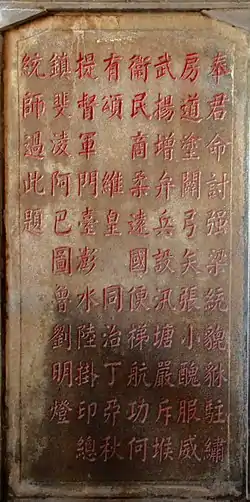 奉君命討强梁統貔貅駐繡
房道塗闢弓矢張小醜服威
武揚增弁兵設汛塘嚴斥堠
衛民商柔遠國便梯航功何
有頌維皇 同治丁夘秋
提督軍門臺澎水陸掛印總
鎮斐凌阿巴圖魯劉明燈
統師過此題